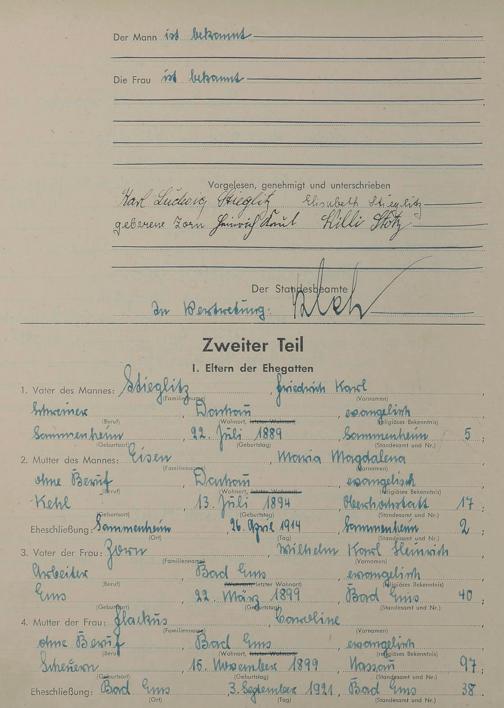 Der Mann ist bekannt
Die Frau ist bekannt
Vorgelesen, genehmigt und unterschrieben
Karl Ludwig Stieglitz Elisabeth Stieglitz
geborene Zorn Heinrich Willi Stotz
Der Standesbeamte
In Vertretung:
Zweiter Teil
I. Eltern der Ehegatten
1. Vater des Mannes: Stieglitz, Friedrich Karl,
(Familienname) (Vornamen)
Schreiner, Dachau, evangelisch
(Beruf) (Wohnort, letzter Wohnort) (religiöses Bekenntnis)
Sammenheim, 22. Juli 1889 Sammenheim 5;
(Geburtsort) (Geburtstag) (Standesamt und Nr.)
2. Mutter des Mannes: Eisen, Maria Magdalena
(Familienname) (Vornamen)
ohne Beruf, Dachau, evangelisch
(Beruf) (Wohnort, letzter Wohnort) (religiöses Bekenntnis)
Kehl, 13. Juli 1894 Oberhochstatt 17;
(Geburtsort) (Geburtstag) (Standesamt und Nr.)
Eheschließung: Sammenheim 26. April 1914 Sammenheim 2
(Ort) (Tag) (Standesamt und Nr.)
3. Vater der Frau: Zorn, Wilhelm Karl Heinrich
(Familienname) (Vornamen)
Arbeiter, Bad Ems, evangelisch
(Beruf) (Wohnort, letzter Wohnort) (religiöses Bekenntnis)
Ems, 22. März 1899 Bad Ems 40;
(Geburtsort) (Geburtstag) (Standesamt und Nr.)
4. Mutter der Frau: Caroline
(Familienname) (Vornamen)
ohne Beruf, Bad Ems, evangelisch
(Beruf) (Wohnort, letzter Wohnort) (religiöses Bekenntnis)
Scheuern, 15. November 1899 Nassau 97;
(Geburtsort) (Geburtstag) (Standesamt und Nr.)
Eheschließung: Bad Ems 3. September 1921, Bad Ems 38
(Ort) (Tag) (Standesamt und Nr.)